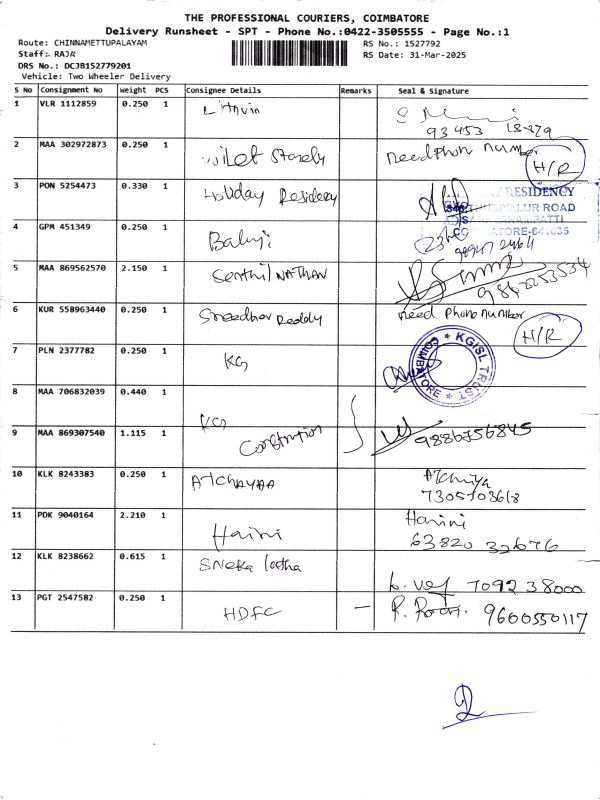 THE PROFESSIONAL COURIERS, COIMBATORE
Delivery Runsheet - SPT - Phone No.:0422-3505555 - Page No.:1
Route: CHINNAMETTUPALAYAM
RS No.: 1527792
Staff:- RAJA
RS Date: 31-Mar-2025
DRS No.: DCJB152779201
Vehicle: Two Wheeler Delivery
S No Consignment No Weight PCS Consignee Details Remarks Seal & Signature
1 VLR 1112859 0.250 1
93453
2 MAA 302972873 0.250 1 need phon number
H/R
3 PON 5254473 0.330 1 Holiday Residecy
RESIDENCY
ROAD
4 GPM 451349 0.250 1 Balaji
5 MAA 869562570 2.150 1 Senthil NATHAN
6 KUR 558963440 0.250 1 Sreedhar Reddy need phono number
H/R
7 PLN 2377782 0.250 1 KG
KGISL TRUST * COIMBATORE *
8 MAA 706832039 0.440 1 KG
9 MAA 869307540 1.115 1 Constrution 9886756845
10 KLK 8243383 0.250 1 ATCHAYAA
7305103618
11 PDK 9040164 2.210 1 Harini Harini
63820 32676
12 KLK 8238662 0.615 1 Sneka latha
7092 38000
13 PGT 2547582 0.250 1 HDFC — 9600550117